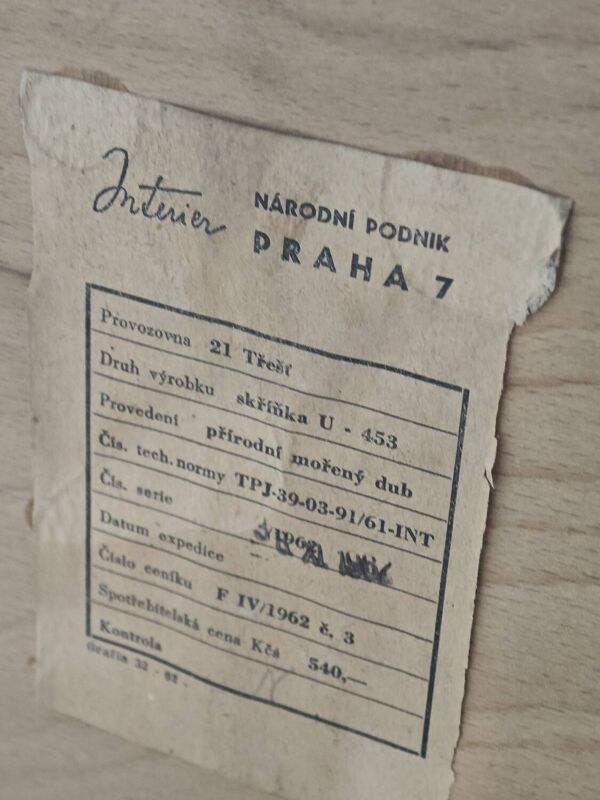 Interier NÁRODNÍ PODNIK
PRAHA 7
Provozovna 21 Třešť
Druh výrobku skříňka U - 453
Provedení přírodní mořený dub
Čís. tech. normy TPJ-39-03-91/61-INT
Čís. serie
Datum expedice
Číslo ceníku F IV/1962 č. 3
Spotřebitelská cena Kčs 540,—
Kontrola
Grafia 32 - 62 -